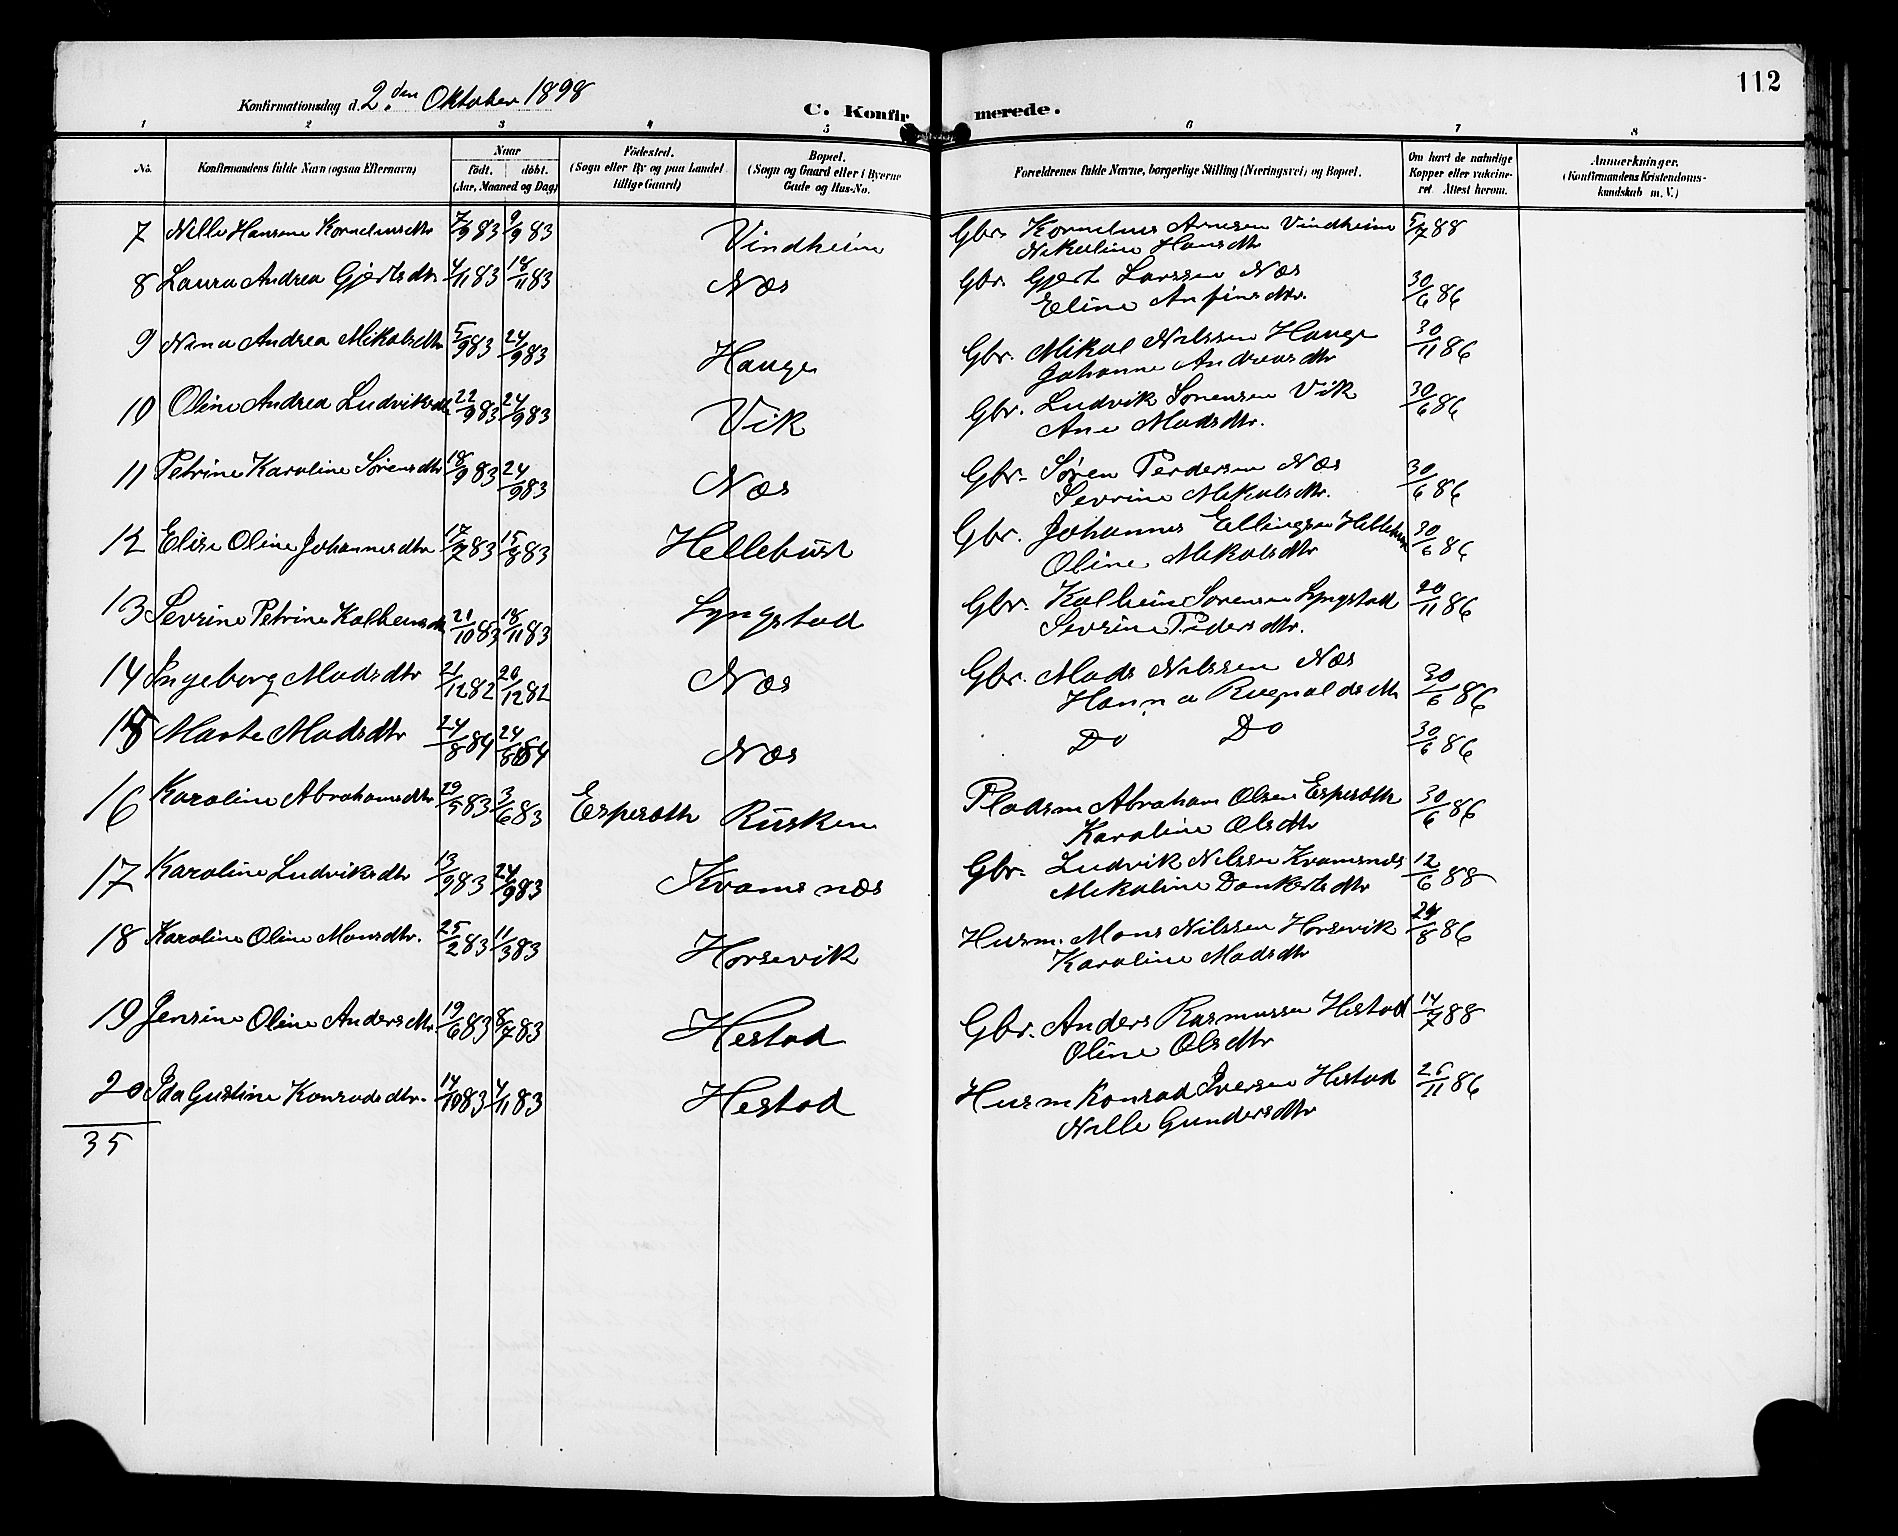 112
Konfirmationsdag d. 2den Oktober 1898
C. Konfirmerede.
1 2 3 4 5 6 7 8
No.
Konfirmandens fulde Navn (ogsaa Efternavn)
Naar
født. døbt.
(Aar, Maaned og Dag)
Fødested.
(Sogn eller By og paa Landet
tillige Gaard)
Bopæl.
(Sogn og Gaard eller i Byerne
Gade og Hus-No.
Forældrenes fulde Navne, borgerlige Stilling (Næringsvei) og Bopæl.
Om havt de naturlige
Kopper eller vakcine-
ret. Attest herom.
Anmærkninger.
(Konfirmandens Kristendoms-
kundskab m. V.)
7 Nille Hansine Korneliusdtr 7/9 83 9/9 83 Vindheim Gbr. Kornelius Arnesen Vindheim 5/7 88
Nikoline Hansdtr
8 Laura Andrea Gjertsdtr 4/11 83 18/11 83 Næs Gbr. Gjert Larssen Næs 30/6 86
Eline Anfinsdtr.
9 Nina Andrea Mikalsdtr 5/9 83 24/9 83 Hauge Gbr. Mikal Nilssen Hauge 30/11 86
Johanne Andreasdtr
10 Oline Andrea Ludviksdtr 22/9 83 24/9 83 Vik Gbr. Ludvik Sørensen Vik 30/6 86
Ane Madsdtr.
11 Petrine Karoline Sørensdtr 18/9 83 24/9 83 Næs Gbr. Søren Perdersen Næs 30/6 86
Sevrine Mikalsdtr.
12 Elise Oline Johannesdtr 17/7 83 15/8 83 Hellebust Gbr. Johannes Ellingsen Hellebust 30/6 86
Oline Mikalsdtr
13 Sevrine Petrine Kolbensdtr 21/10 83 18/11 83 Lyngstad Gbr. Kolbein Sørensen Lyngstad 20/11 86
Sevrine Pedersdtr.
14 Ingeborg Madsdtr 21/12 82 20/12 82 Næs Gbr. Mads Nilssen Næs 30/6 86
Hanna Rognaldsdtr
15 Marte Madsdtr 24/8 84 24/8 84 Næs Do Do 30/6 86
16 Karoline Abrahamsdtr 29/5 83 3/6 83 Esperøth Rusken Pladsm Abraham Olsen Esperøth 30/6 86
Karoline Olsdtr
17 Karoline Ludviksdtr 13/9 83 24/9 83 Kvamsnæs Gbr. Ludvik Nilssen Kvamsnæs 12/6 88
Mikaline Dankertsdtr
18 Karoline Oline Monsdtr. 25/2 83 11/3 83 Horsevik Husm. Mons Nilssen Horsevik 24/8 86
Karoline Madsdtr
19 Jensine Oline Andersdtr. 19/6 83 8/7 83 Hestad Gbr. Anders Rasmussen Hestad 14/7 88
Oline Olsdtr
20 Ida Gustine Konradsdtr. 14/10 83 4/11 83 Hestad Husm Konrad Iversen Hestad 26/11 86
Nille Gundersdtr
35